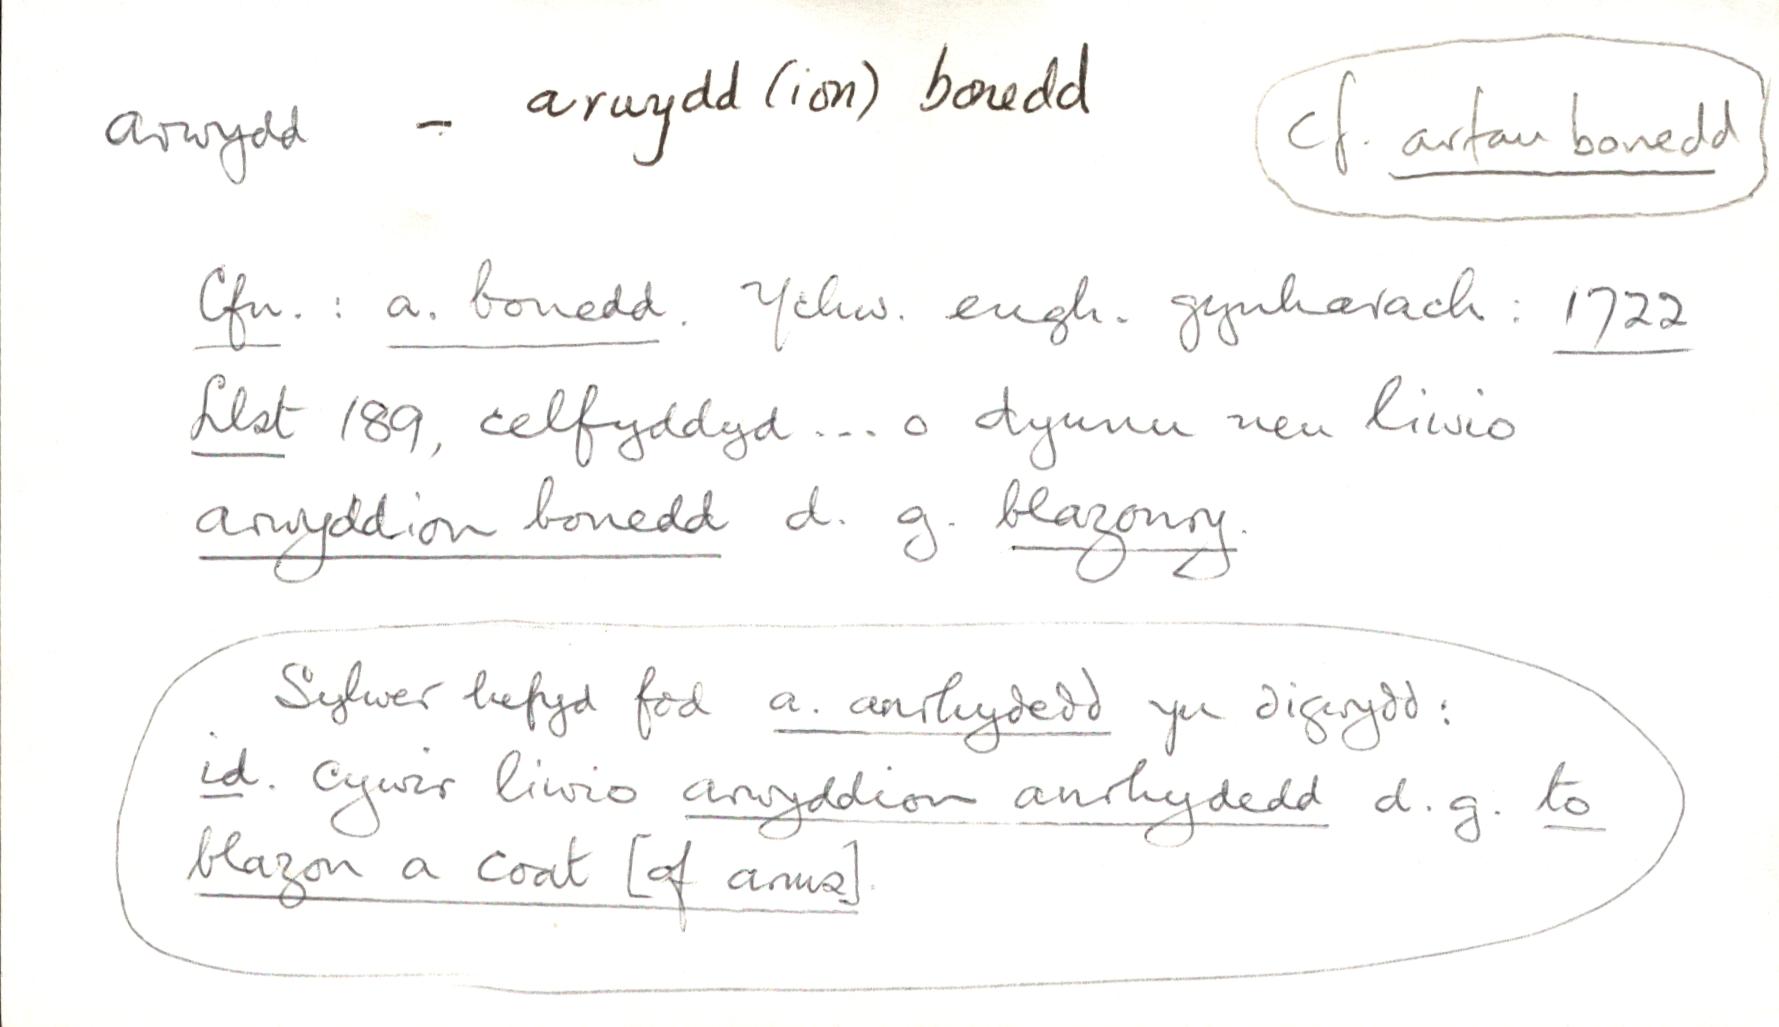 arwydd - arwydd(ion) bonedd
Cf. arfau bonedd
Cfn. : a. bonedd. Ychw. engh. gynharach : 1722
Llst 189, celfyddyd ... o dynnu neu liwio
arwyddion bonedd d. g. blazonry.
Sylwer hefyd fod a. anrhydedd yn digwydd :
id. cywir liwio arwyddion anrhydedd d. g. to
blazon a coat [of arms].